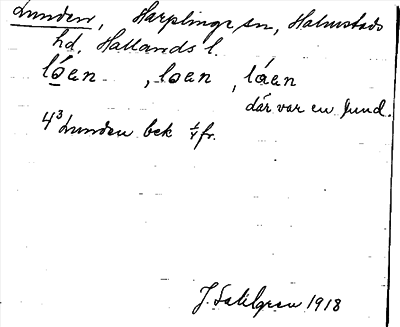 Lunden, Harplinge sn, Halmstads
hd, Hallands l.
lóen , loen , láen
där var en lund.
4³ Lunden bek ¼ fr.
J. Sahlgren 1918